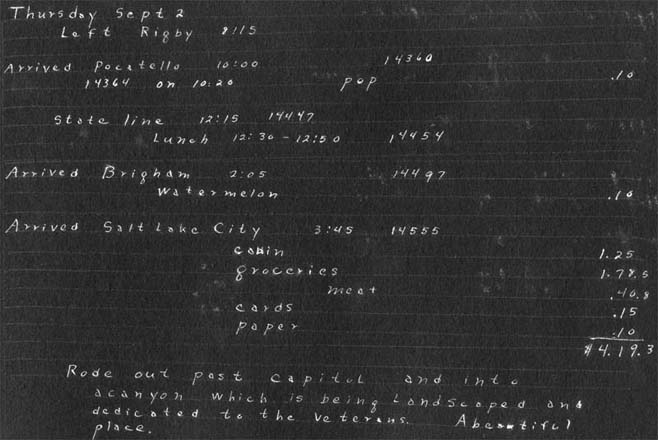 Thursday Sept 2
Left Rigby 8:15
Arrived Pocatello 10:00 14360
14364 on 10:20 pop .10
State line 12:15 14447
Lunch 12:30 - 12:50 14454
Arrived Brigham 2:05 14497
watermelon .10
Arrived Salt Lake City 3:45 14555
cabin 1.25
groceries 1.78.5
meat .40.8
cards .15
paper .10
$4.19.3
Rode out past capitol and into
a canyon which is being landscaped and
dedicated to the veterans. A beautiful
place.